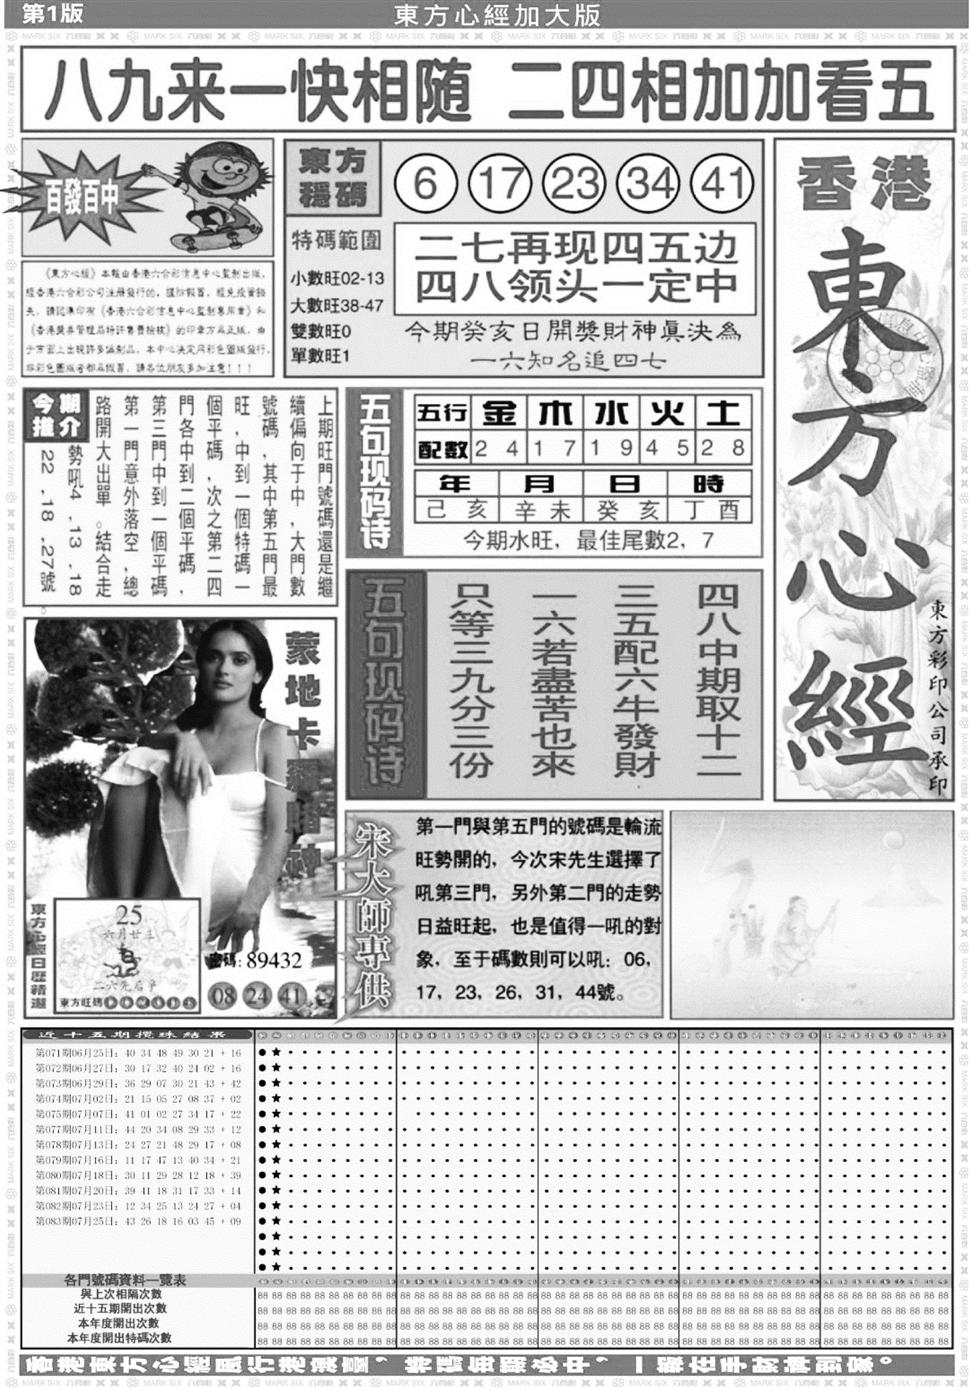 第1版
東方心經加大版
八九来一快相随 二四相加加看五
百發百中
《東方心經》本報由香港六合彩信息中心監制出版，
經香港六合彩公司注册發行的，謹防假冒，避免投資損
失，請認準印有《香港六合彩信息中心監制專用章》和
《香港獎券管理局特許售賣檢核》的印章方爲正版，由
于市面上出現許多僞制品，本中心決定用彩色圖版發行，
非彩色圖版者都爲假冒，請各位朋友多加注意！！！
東方
穩碼
6 17 23 34 41
特碼範圍
小數旺02-13
大數旺38-47
雙數旺0
單數旺1
二七再现四五边
四八领头一定中
今期癸亥日開獎財神眞决為
一六知名追四七
香港
東方心經
東方彩印公司承印
今期
推介
上期旺門號碼還是繼
續偏向于中，大門數
號碼，其中第五門最
旺，中到一個特碼一
個平碼，次之第二四
門各中到二個平碼，
第三門中到一個平碼，
第一門意外落空，總
路開大出單。結合走
勢吼4，13，18
22，18，27號
。
五句现码诗
五行 金 木 水 火 土
配數 2 4 1 7 1 9 4 5 2 8
年 月 日 時
己亥 辛未 癸亥 丁酉
今期水旺，最佳尾數2，7
五句现码诗
四八中期取十二
三五配六牛發財
一六若盡苦也來
只等三九分三份
蒙地卡羅賭神
東方心經日歷精選
25
六月廿三
二六先后争
東方旺碼
密碼：89432
08 24 41
宋大師專供
第一門與第五門的號碼是輪流
旺勢開的，今次宋先生選擇了
吼第三門，另外第二門的走勢
日益旺起，也是值得一吼的對
象，至于碼數則可以吼：06，
17，23，26，31，44號。
近十五期攪珠結果
第071期06月25日：40 34 48 49 30 21 + 16
第072期06月27日：30 17 32 40 24 02 + 16
第073期06月29日：36 29 07 30 21 43 + 42
第074期07月02日：21 15 05 27 08 37 + 02
第075期07月07日：41 01 02 27 34 17 + 22
第077期07月11日：44 20 34 08 29 33 + 12
第078期07月13日：24 27 21 48 29 17 + 08
第079期07月16日：11 17 47 13 40 34 + 21
第080期07月18日：30 11 29 28 12 18 + 39
第081期07月20日：39 41 18 31 17 33 + 14
第082期07月23日：12 34 25 13 24 27 + 04
第083期07月25日：43 26 18 16 03 45 + 09
各門號碼資料一覽表
與上次相隔次數
近十五期開出次數
本年度開出次數
本年度開出特碼次數
香港東方心經風行港澳臺，特碼每期必中，一版在手財神到家。